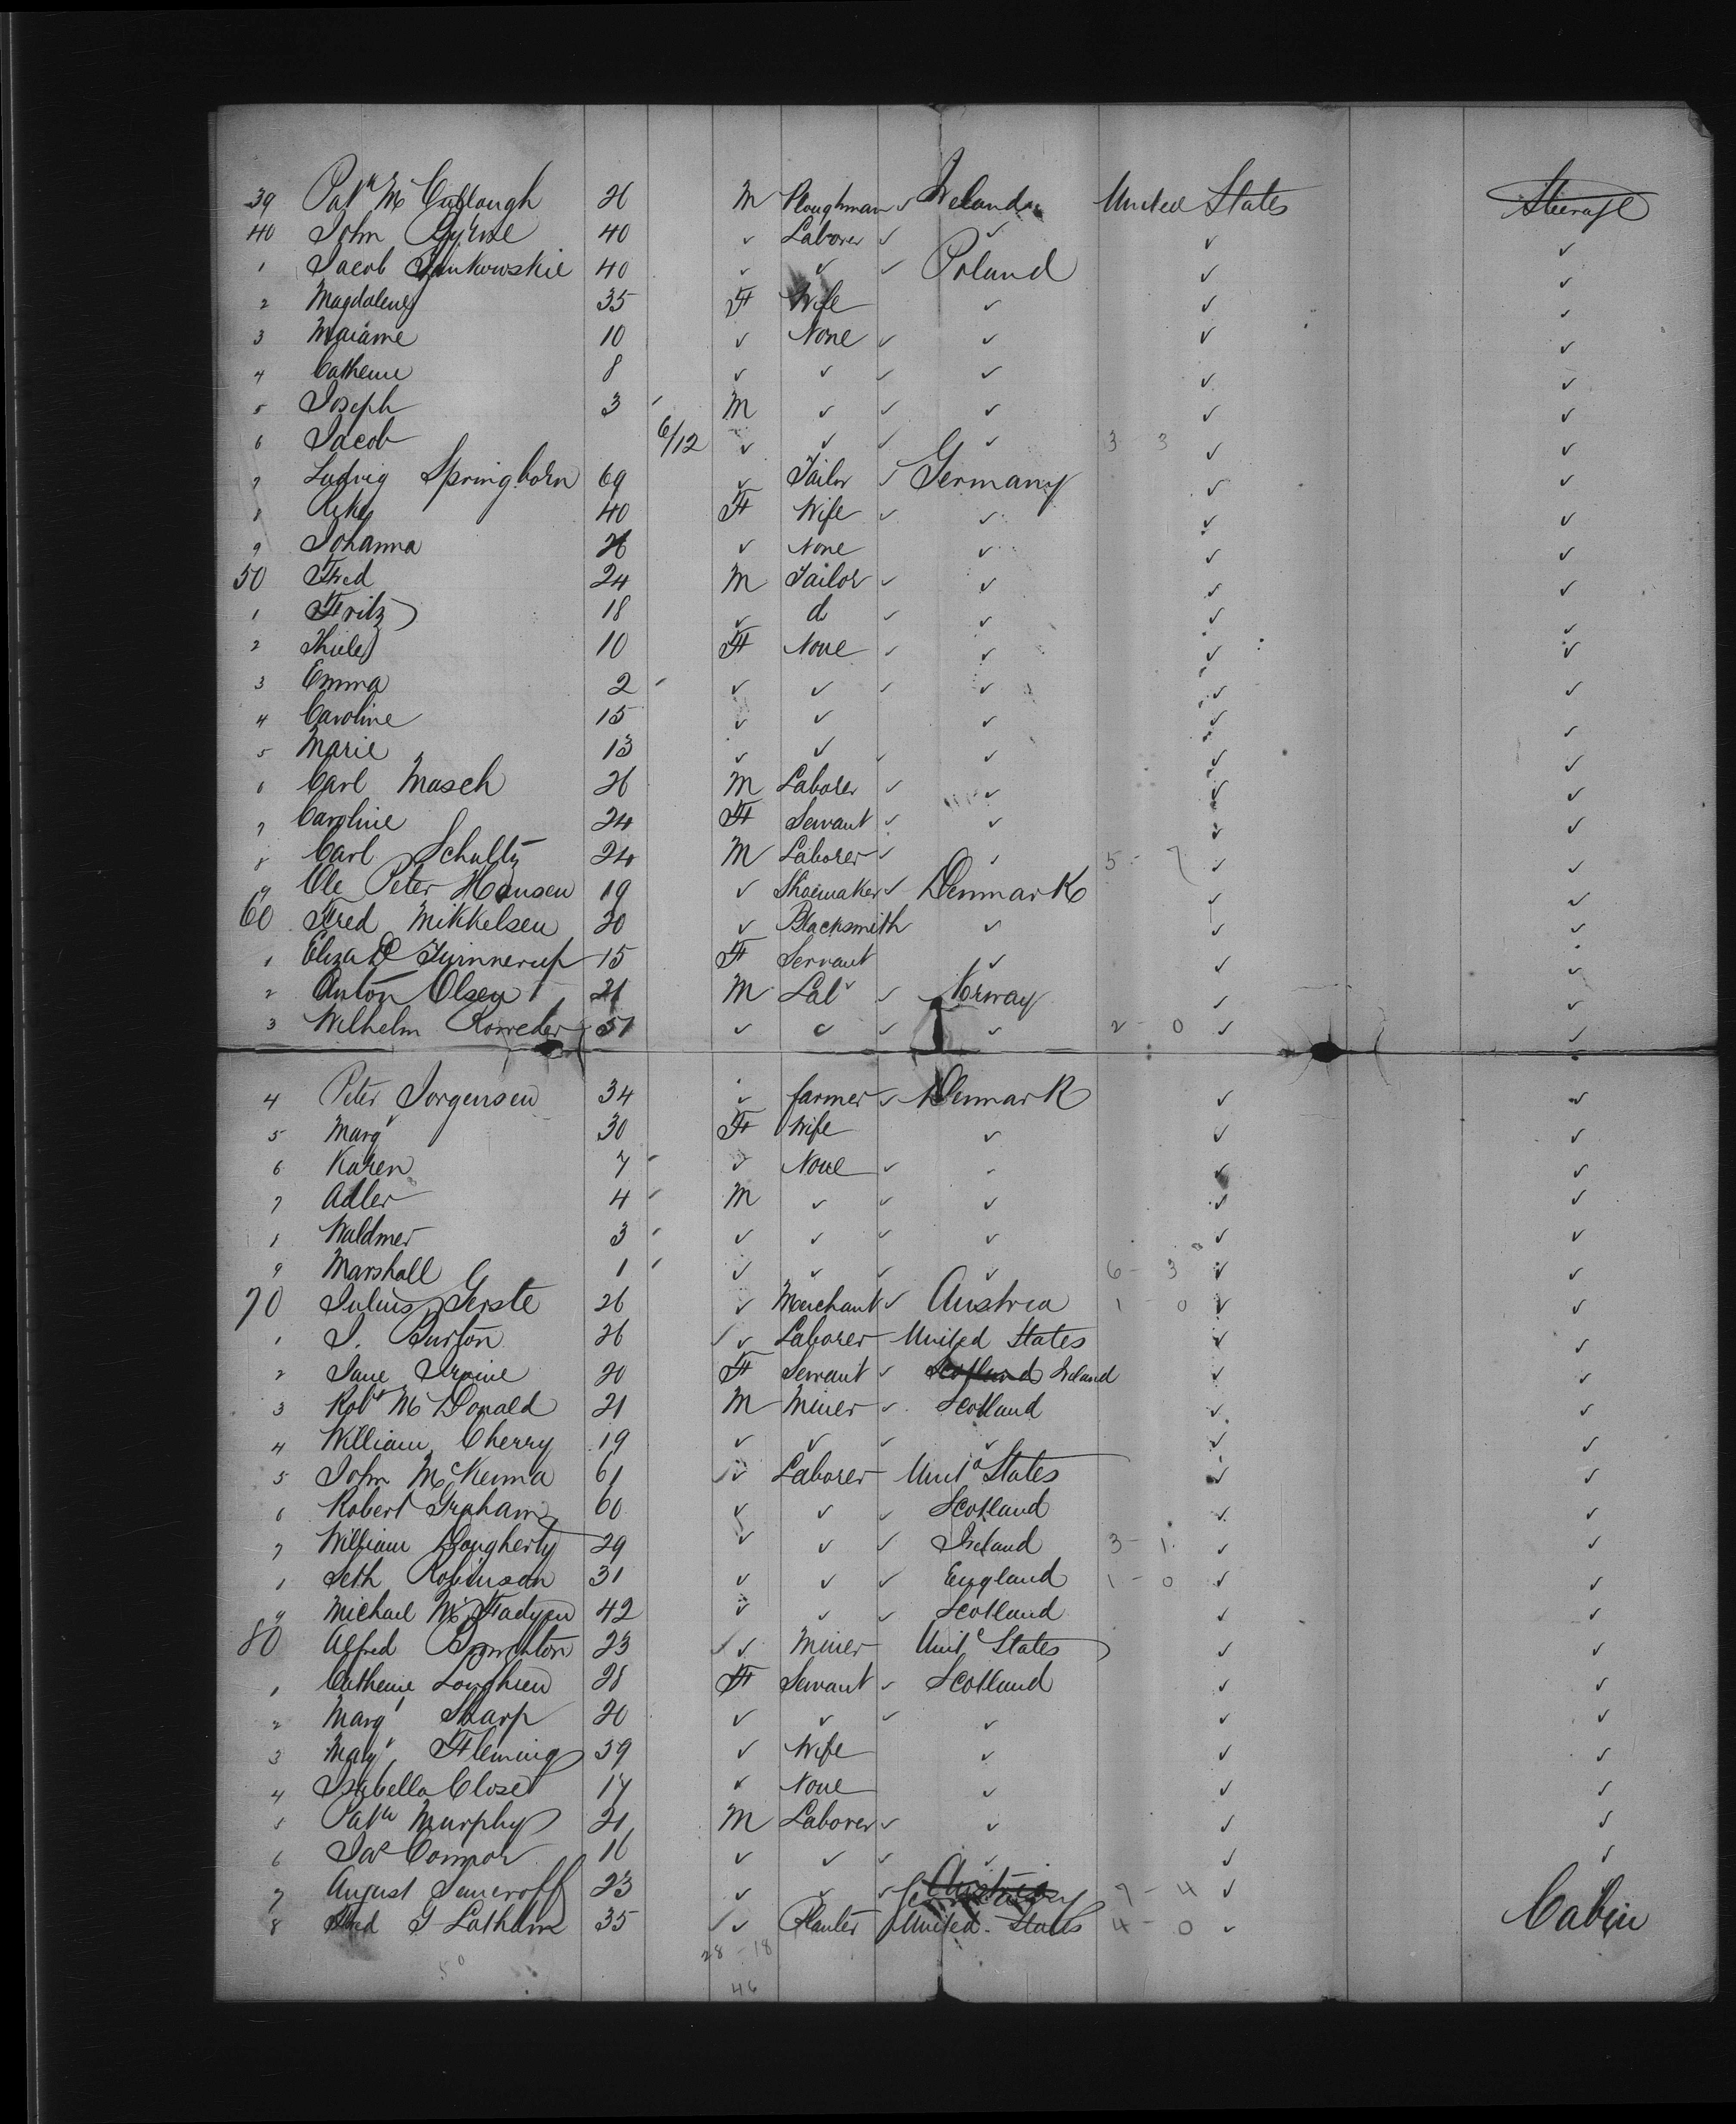 39 Patk Mc Cullough 26 M Ploughman ✓ Ireland United States Steerage
40 John 40 ✓ Laborer ✓ ✓ ✓ ✓
1 Jacob Jankowskie 40 ✓ ✓ ✓ Poland ✓ ✓
2 Magdalene 35 F Wife ✓ ✓ ✓
3 Marianne 10 ✓ None ✓ ✓ ✓ ✓
4 Catherine 8 ✓ ✓ ✓ ✓ ✓ ✓
5 Joseph 3 M ✓ ✓ ✓ ✓ ✓
6 Jacob 6/12 ✓ ✓ ✓ ✓ 3 - 3 ✓ ✓
7 Ludvig Springborn 69 ✓ Tailor ✓ Germany ✓ ✓
8 Rike 40 F Wife ✓ ✓ ✓ ✓
9 Johanna 26 ✓ None ✓ ✓ ✓
50 Fred 24 M Tailor ✓ ✓ ✓ ✓
1 Fritz 18 ✓ do ✓ ✓ ✓ ✓
2 Thiele 10 F None ✓ ✓ ✓ ✓
3 Emma 2 ✓ ✓ ✓ ✓ ✓ ✓
4 Caroline 15 ✓ ✓ ✓ ✓ ✓
5 Marie 13 ✓ ✓ ✓ ✓ ✓
6 Carl Masch 26 M Laborer ✓ ✓ ✓ ✓
7 Caroline 24 F Servant ✓ ✓ ✓ ✓
8 Carl Schultz 24 M Laborer ✓ ✓ 5 - 7 ✓ ✓
9 Ole Peter Hansen 19 ✓ Shoemaker ✓ Denmark ✓ ✓
60 Fred Mikkelsen 20 ✓ Blacksmith ✓ ✓ ✓
1 Eliza D 15 F Servant ✓ ✓ ✓
2 Anton Olsen 21 M Labr ✓ Norway ✓ ✓
3 Wilhelm Korreder 51 ✓ ✓ ✓ ✓ 2 - 0 ✓ ✓
4 Peter Jorgensen 34 ✓ farmer ✓ Denmark ✓ ✓
5 Margt 30 F Wife ✓ ✓ ✓
6 Karen 7 ✓ None ✓ ✓ ✓ ✓
7 Adler 4 M ✓ ✓ ✓ ✓ ✓
8 Waldmer 3 ✓ ✓ ✓ ✓ ✓ ✓
9 Marshall 1 ✓ ✓ ✓ ✓ 6 - 3 ✓ ✓
70 Julius Gerste 26 ✓ Merchant ✓ Austria 1 - 0 ✓ ✓
1 J. Burton 26 ✓ Laborer United States ✓ ✓
2 Jane Irvine 20 F Servant ✓ Scotland Ireland ✓ ✓
3 Robt Mc Donald 21 M Miner ✓ Scotland ✓ ✓
4 William Cherry 19 ✓ ✓ ✓ ✓ ✓ ✓
5 John McKenna 61 ✓ Laborer Unitd States ✓ ✓
6 Robert Graham 60 ✓ ✓ ✓ Scotland ✓ ✓
7 William Dougherty 29 ✓ ✓ ✓ Ireland 3 - 1 ✓ ✓
8 Seth Robinson 31 ✓ ✓ ✓ England 1 - 0 ✓ ✓
9 Michael Mc Fadyen 42 ✓ ✓ ✓ Scotland ✓ ✓
80 Alfred 23 ✓ Miner Unitd States ✓ ✓
1 Catherine Loughren 28 F Servant ✓ Scotland ✓ ✓
2 Margt Sharp 20 ✓ ✓ ✓ ✓ ✓ ✓
3 Margt Fleming 39 ✓ Wife ✓ ✓ ✓
4 Isabella Close 17 ✓ None ✓ ✓ ✓
5 Patk Murphy 21 M Laborer ✓ ✓ ✓ ✓
6 Jas Connor 16 ✓ ✓ ✓ ✓ ✓ ✓
7 August 23 ✓ ✓ ✓ Austria Germany 7 - 4 ✓
8 Fred G Latham 35 ✓ Planter United States 4 - 0 ✓ Cabin
28 - 18
50
46